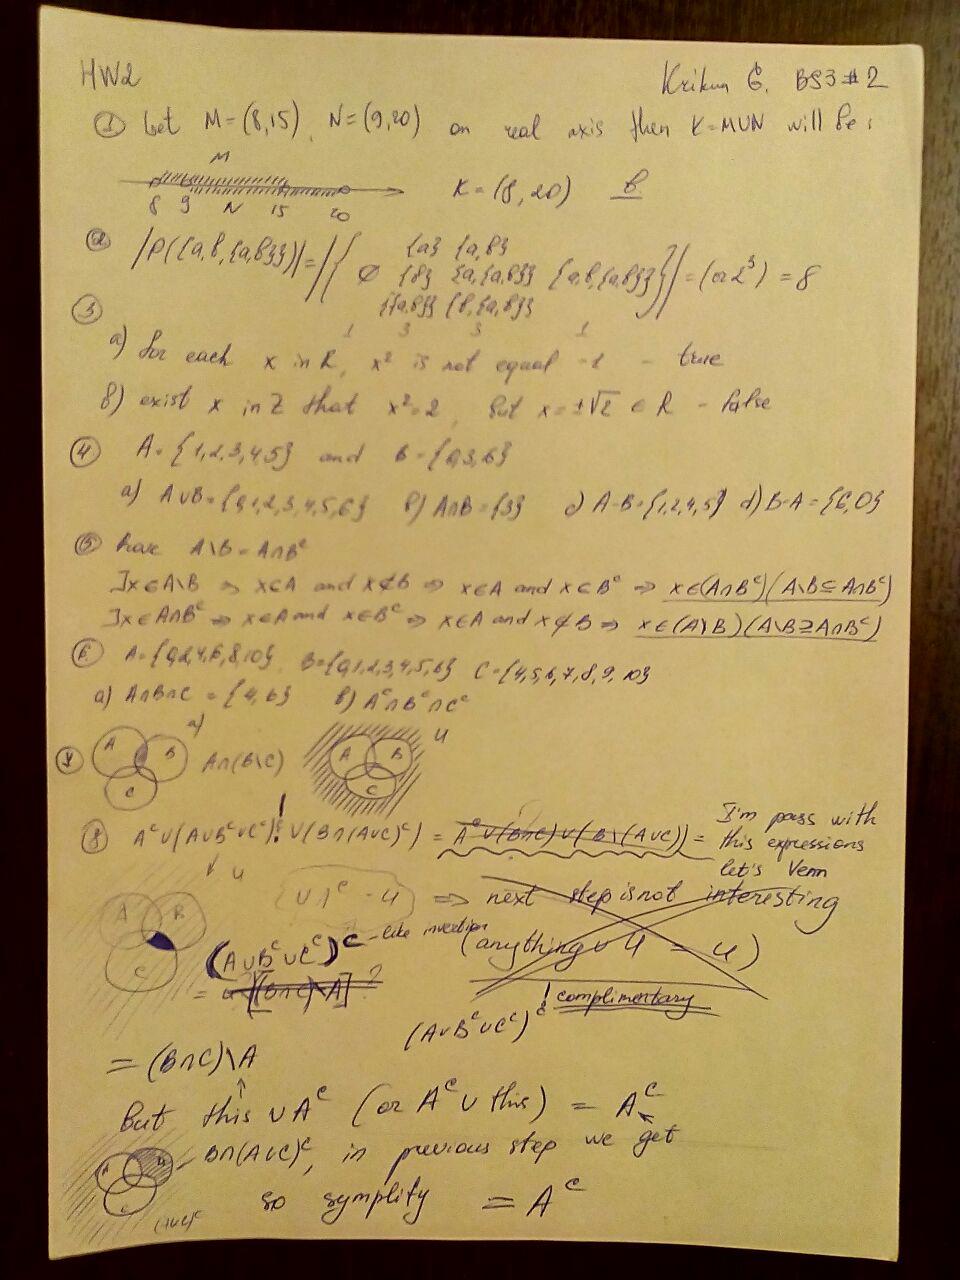 HW2
Krikun G. BS3 #2
① Let M=(8,15), N=(9,20) on real axis then K=M∪N will be:
M
8 9 N 15 20
K=(8,20) B
② |P({a,b,{a,b}})|=|{ ∅ {a} {b} {{a,b}} {a,b} {a,{a,b}} {b,{a,b}} {a,b,{a,b}} }|=(or 2³)=8
1 3 3 1
③
a) for each x in R, x² is not equal -1 - true
b) exist x in Z that x²=2, but x=±√2 ∈ R - false
④ A={1,2,3,4,5} and B={0,3,6}
a) A∪B={0,1,2,3,4,5,6} b) A∩B={3} c) A-B={1,2,4,5} d) B-A={6,0}
⑤ have A\B=A∩Bᶜ
∃x∈A\B ⇒ x∈A and x∉B ⇒ x∈A and x∈Bᶜ ⇒ x∈(A∩Bᶜ)(A\B⊆A∩Bᶜ)
∃x∈A∩Bᶜ ⇒ x∈A and x∈Bᶜ ⇒ x∈A and x∉B ⇒ x∈(A\B)(A\B⊇A∩Bᶜ)
⑥ A={0,2,4,6,8,10} B={0,1,2,3,4,5,6} C={4,5,6,7,8,9,10}
a) A∩B∩C = {4,6} b) Aᶜ∩Bᶜ∩Cᶜ
⑦ A B C a) A∩(B\C) A B C U
⑧ Aᶜ∪(A∪Bᶜ∪Cᶜ)ᶜ∪(B∩(A∪C)ᶜ) = Aᶜ∪(B∩C)∪(B\(A∪C)) =
I'm pass with
this expressions
let's Venn
U
A B C
⇒ next step is not interesting
(anything ∪ U = U)
(A∪Bᶜ∪Cᶜ)ᶜ - like invection
[(B∩C)\A] ?
(A∪Bᶜ∪Cᶜ)ᶜ ! complimentary
= (B∩C)\A
But this ∪ Aᶜ (or Aᶜ ∪ this) = Aᶜ
A B C - B∩(A∪C)ᶜ, in previous step we get
(A∪C)ᶜ
so symplify = Aᶜ